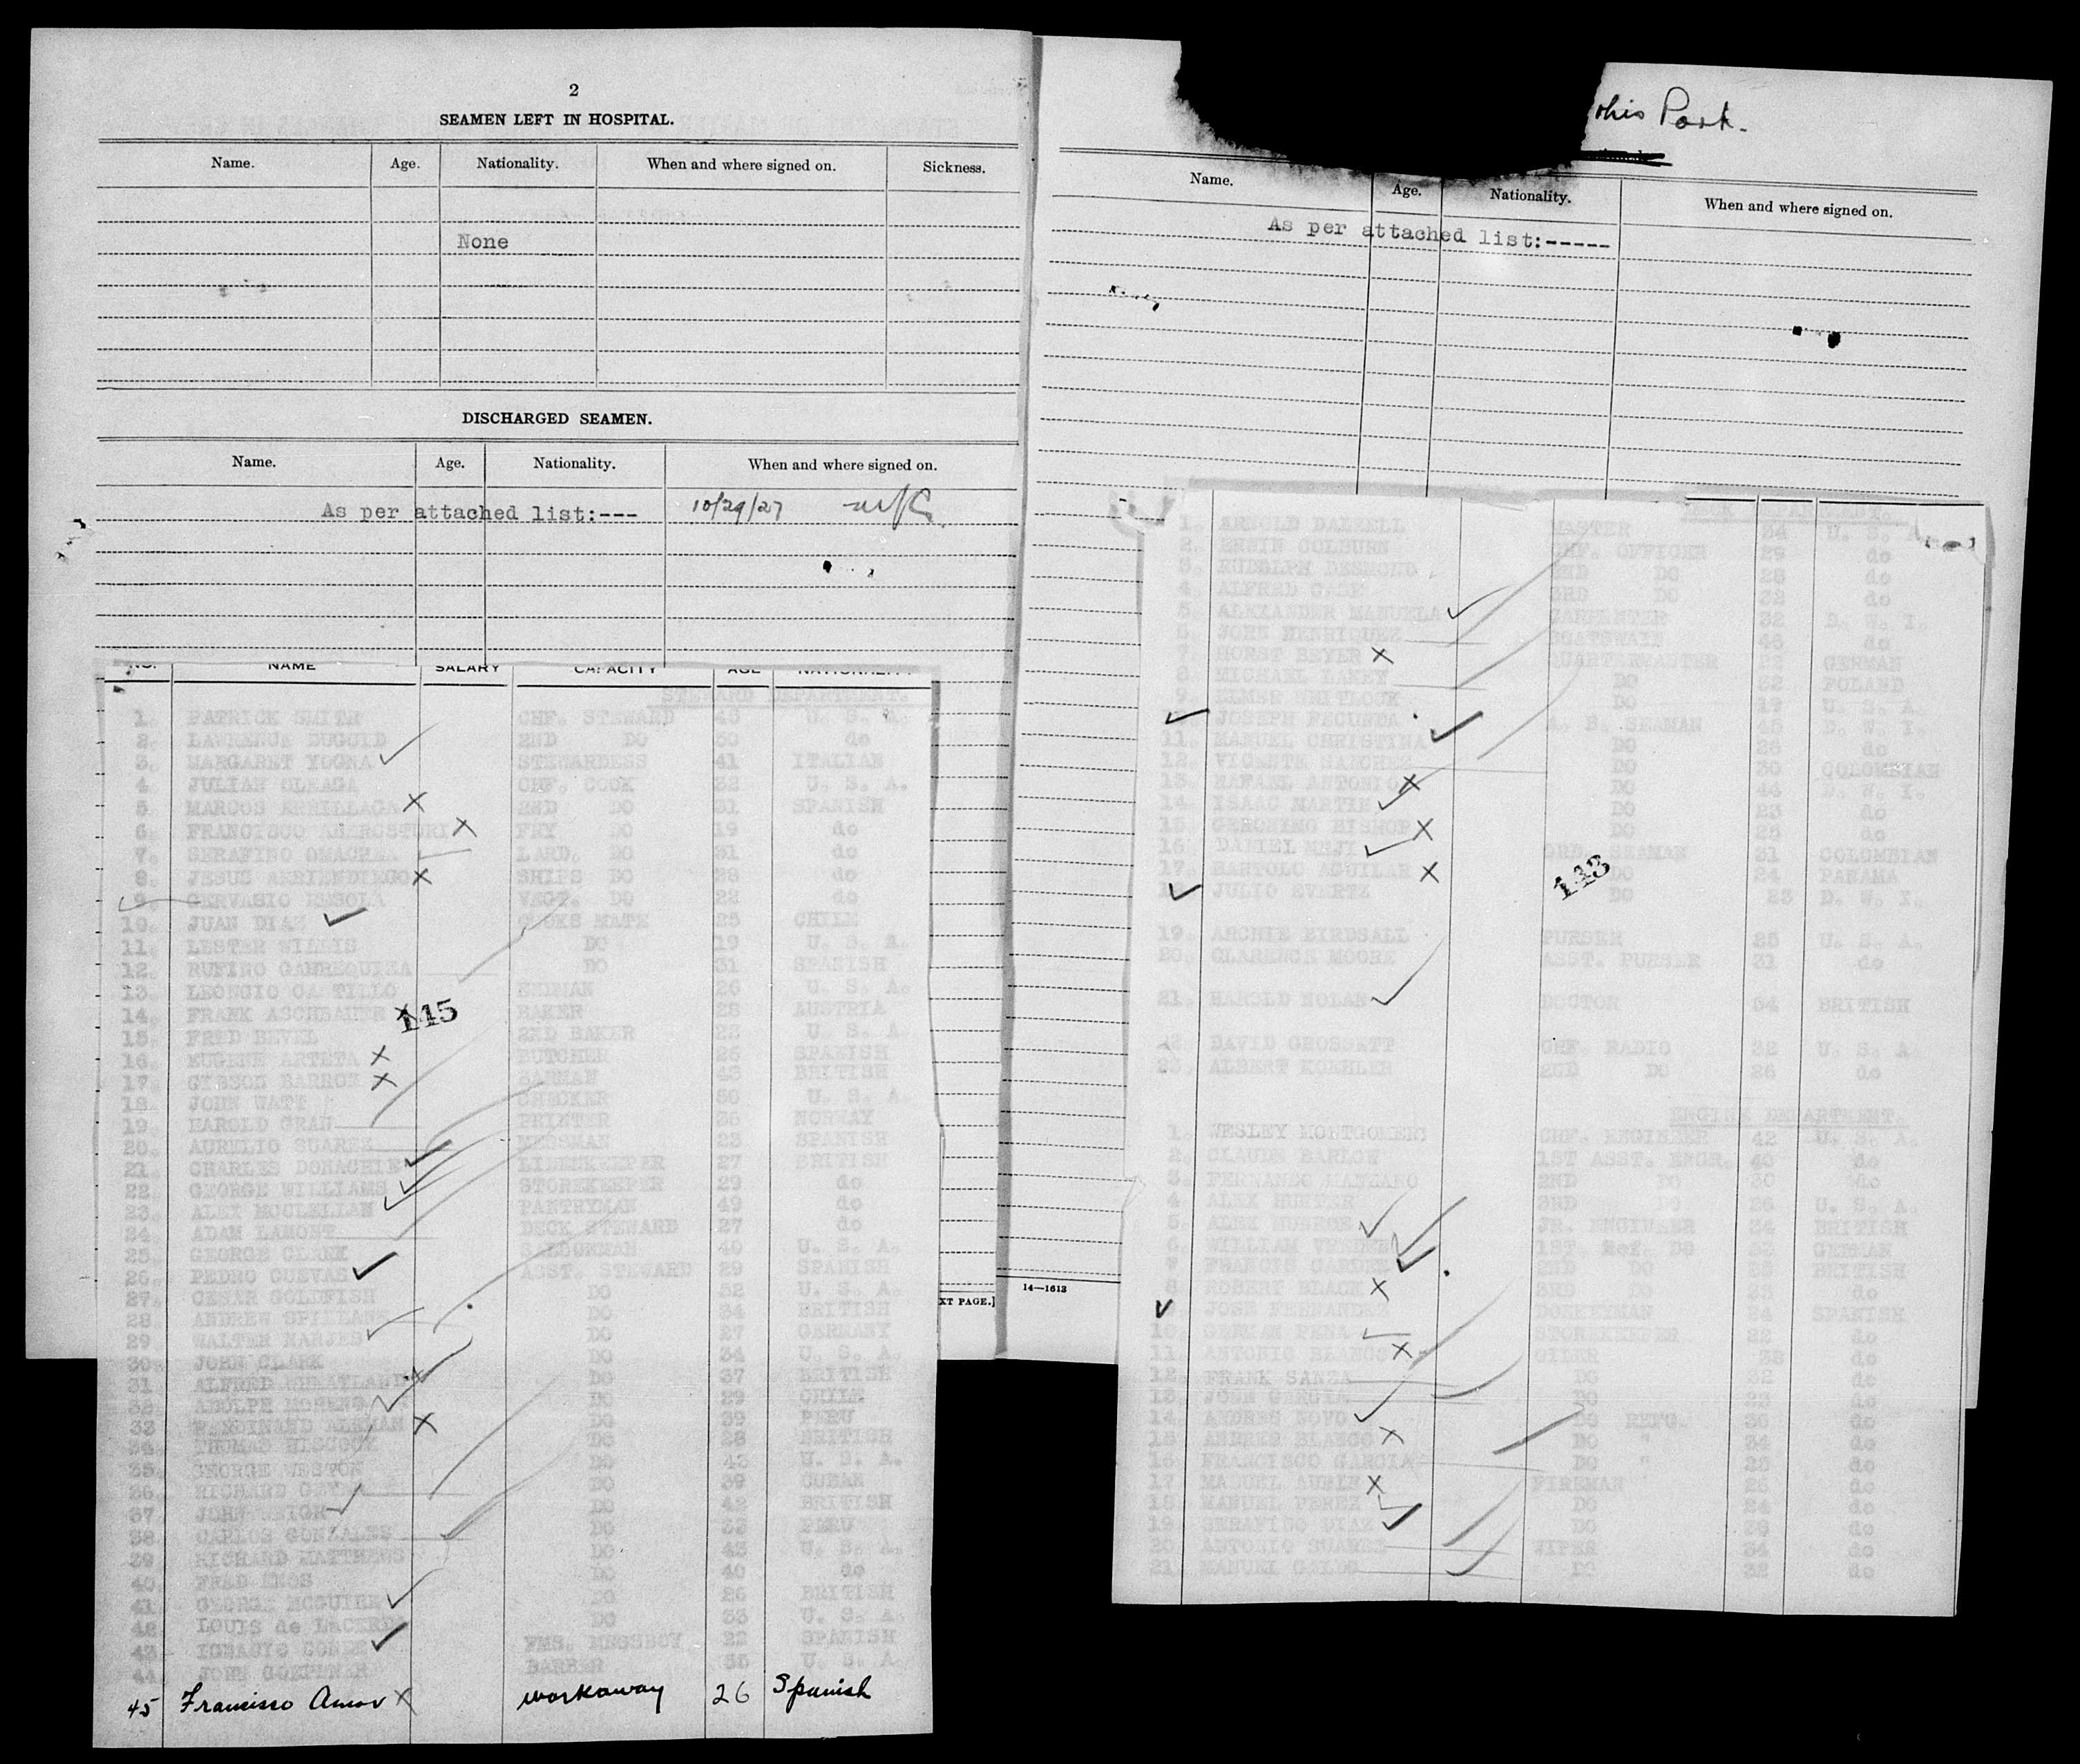 2
SEAMEN LEFT IN HOSPITAL.
Name. Age. Nationality. When and where signed on. Sickness.
None
DISCHARGED SEAMEN.
Name. Age. Nationality. When and where signed on.
As per attached list:--- 10/29/27
NO. NAME SALARY CAPACITY AGE NATIONALITY
STEWARD DEPARTMENT.
1. PATRICK SMITH CHF. STEWARD 45 U. S. A.
2. LAWRENCE DUGUID 2ND DO 50 do
3. MARGARET STEWARDESS 41 ITALIAN
4 JULIAN OLEAGA CHF. COOK 32 U. S. A.
5. MARCOS ARRILLAGA 2ND DO 31 SPANISH
6. FRANCISCO FRY DO 19 do
7. SERAFINO LARD. DO 31 do
8. JESUS SHIPS DO 26 do
9. GERVASIO VEGT. DO 22 do
10. JUAN DIAZ COOKS MATE 25 CHILE
11. LESTER WILLIS DO 19 U. S. A.
12. RUFINO DO 31 SPANISH
13. LEONCIO CASTILLO 26 U. S. A.
14. FRANK BAKER 28 AUSTRIA
145
15. FRED BEVEL 2ND BAKER 22 U. S. A.
16. EUGENE ARTETA BUTCHER 26 SPANISH
17. GIBSON BARROW BARMAN 45 BRITISH
18. JOHN WATT CHECKER 50 U. S. A.
19. HAROLD GRAN PRINTER 36 NORWAY
20. AURELIO SUAREZ MESSMAN 23 SPANISH
21. CHARLES DONACHIE LINENKEEPER 27 BRITISH
22. GEORGE WILLIAMS STOREKEEPER 29 do
23. ALEX MCCLELLAN PANTRYMAN 49 do
24. ADAM LAMONT DECK STEWARD 27 do
25. GEORGE CLERK 40 U. S. A.
26. PEDRO CUEVAS ASST. STEWARD 29 SPANISH
27. CESAR GOLDFISH DO 52 U. S. A.
28. ANDREW SPILLANE DO 34 BRITISH
29. WALTER MARJES DO 27 GERMANY
30. JOHN CLARK DO 34 U. S. A.
31 ALFRED WHEATLAND DO 37 BRITISH
32. ADOLPH MORENO DO 29 CHILE
33 FERDINAND ALEMAN DO 39 PERU
34. THOMAS HISCOCK DO 28 BRITISH
35. GEORGE WESTON DO 43 U. S. A.
36. RICHARD DO 39 CUBAN
37. JOHN DO 42 BRITISH
38. CARLOS GONZALES DO 33 PERU
39. RICHARD MATTHEWS DO 43 U. S. A.
40. FRED ENOS DO 40 do
41. GEORGE MCGUIRK DO 26 BRITISH
42. LOUIS de LaCERRA DO 33 U. S. A
43. IGNACIO FMS. MESSBOY 22 SPANISH
44. JOHN BARBER 55 U. S. A.
45 Francisco Amor workaway 26 Spanish
XT PAGE.]
this Port.
Name. Age. Nationality. When and where signed on.
As per attached list:-----
DECK DEPARTMENT.
1. ARNOLD DALZELL MASTER 34 U. S. A.
2. ERWIN COLBURN CHF. OFFICER 29 do
3. RUDOLPH DESMOND 2ND DO 28 do
4. ALFRED CASE 3RD DO 32 do
5. ALEXANDER MANUELA CARPENTER 32 D. W. I.
6. JOHN HENRIQUEZ BOATSWAIN 46 do
7. HORST BEYER QUARTERMASTER 22 GERMAN
8. MICHAEL LAKEY DO 22 POLAND
9. ELMER WHITLOCK DO 19 U. S. A.
JOSEPH A. B. SEAMAN 46 D. W. I.
11. MANUEL CHRISTINA DO 26 do
12. VICENTE SANCHEZ DO 30 COLOMBIAN
13. RAFAEL ANTONIO DO 44 D. W. I.
14. ISAAC MARTIN DO 23 do
15. GERONIMO BISHOP DO 25 do
16. DANIEL MEJI ORD. SEAMAN 31 COLOMBIAN
17. BARTOLO AGUILAR DO 24 PANAMA
JULIO EVERTZ DO 23 D. W. I.
143
19. ARCHIE BIRDSALL PURSER 25 U. S. A.
20. CLARENCE MOORE ASST. PURSER 31 do
21. HAROLD NOLAN DOCTOR 54 BRITISH
22 DAVID GROSSETT CHF. RADIO 32 U. S. A
23. ALBERT KOEHLER 2ND DO 26 do
ENGINE DEPARTMENT.
1. WESLEY MONTGOMERY CHF. ENGINEER 42 U. S. A.
2. CLAUDE BARLOW 1ST ASST. ENGR. 40 do
3. FERNANDO MANZANO 2ND DO 30 do
4 ALEX HUNTER 3RD DO 26 U. S. A.
5. ALEX JR. ENGINEER 34 BRITISH
6. WILLIAM 1ST. Ref. DO GERMAN
7 FRANCIS 2ND DO BRITISH
8. ROBERT BLACK 3RD DO do
JOSE FERNANDEZ DONKEYMAN 24 SPANISH
10. GERMAN PENA STOREKEEPER 22 do
11. ANTONIO BLANCO OILER 38 do
12. FRANK SANZA DO 32 do
13. JOSE GARCIA DO 23 do
14. ANDRES NOVO DO REFG. 36 do
15. ANDRES BLANCO DO " 34 do
16. FRANCISCO GARCIA DO " 28 do
17. MANUEL FIREMAN 25 do
18. MANUEL PEREZ DO 24 do
19. SERAFINO DIAZ DO 39 do
20. ANTONIO SUAREZ WIPER 34 do
21. MANUEL DO 32 do
14—1613